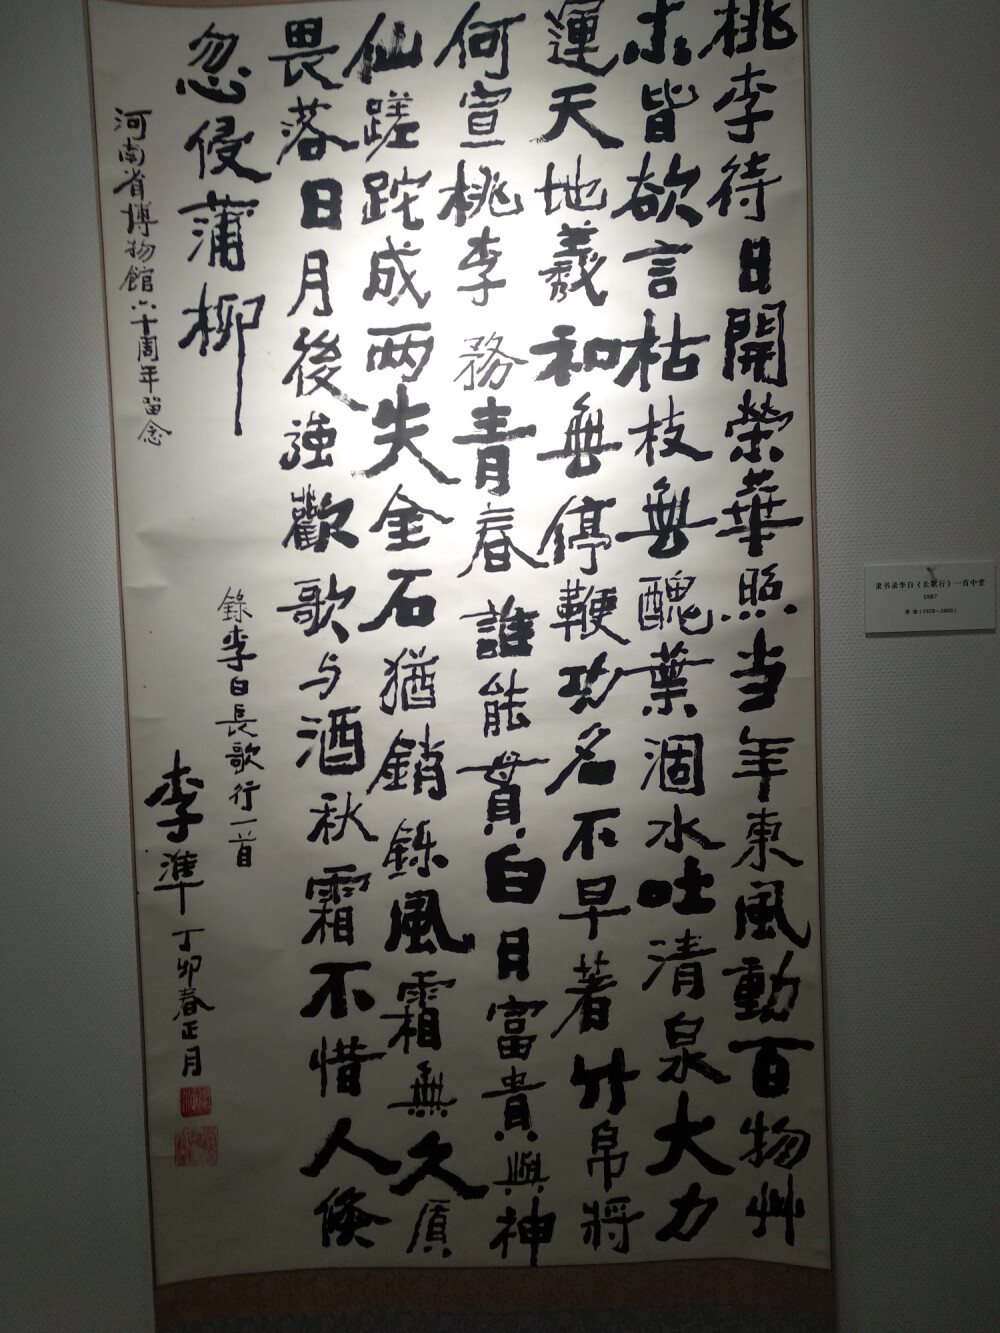 桃李待日開榮華照当年東風動百物艸
木皆欲言枯枝無醜葉涸水吐清泉大力
運天地羲和無停鞭功名不早著竹帛將
何宣桃李務青春誰能貫白日富貴與神
仙蹉跎成两失金石猶銷鑠風霜無久質
畏落日月後強歡歌与酒秋霜不惜人倏
忽侵蒲柳
錄李白長歌行一首
河南省博物館六十周年留念
李準丁卯春正月
隶书录李白《长歌行》一首中堂
1987
李准(1928—2000)